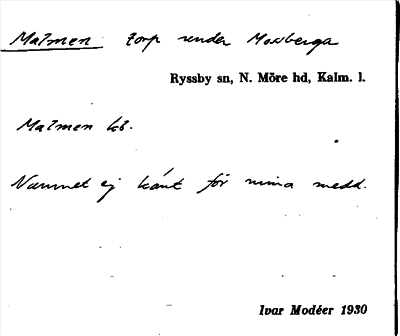 Malmen torp under Moxberga
Ryssby sn, N. Möre hd, Kalm. l.
Malmen kb.
Namnet ej känt för mina medd.
Ivar Modéer 1930